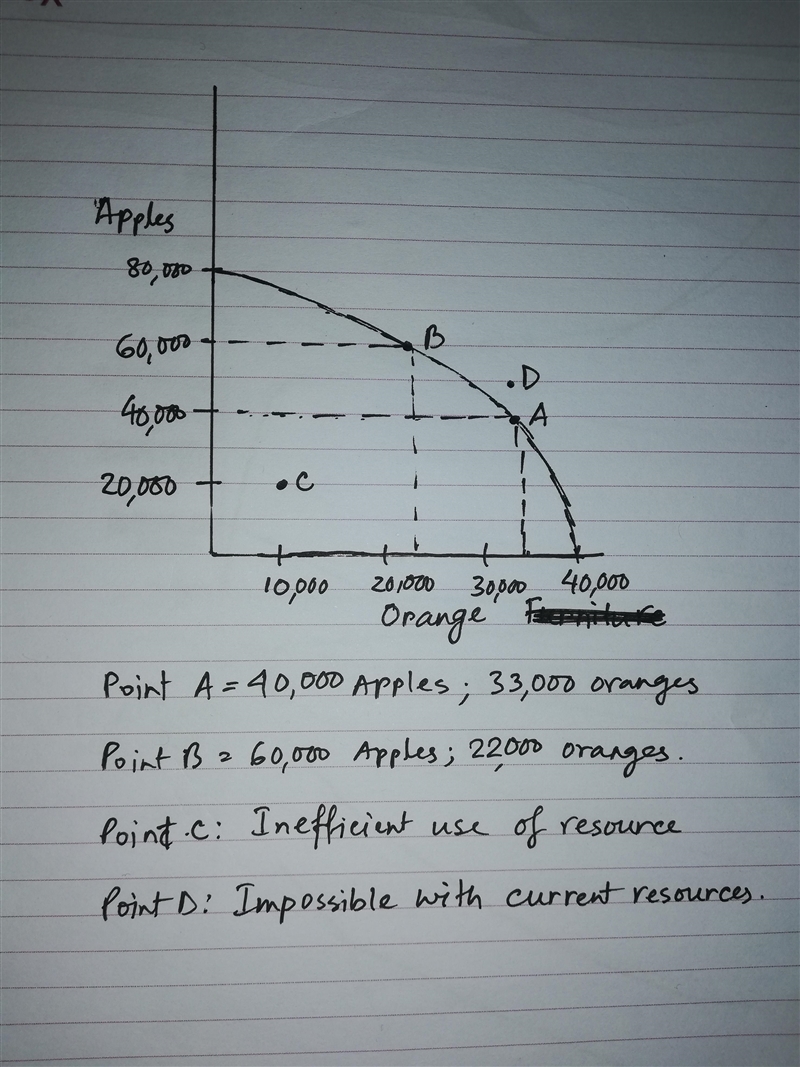 Apples
80,000
60,000
B
D
40,000
A
20,000
C
10,000 20,000 30,000 40,000
Orange Furniture
Point A = 40,000 Apples; 33,000 oranges
Point B = 60,000 Apples; 22,000 oranges.
Point C: Inefficient use of resource
Point D: Impossible with current resources.